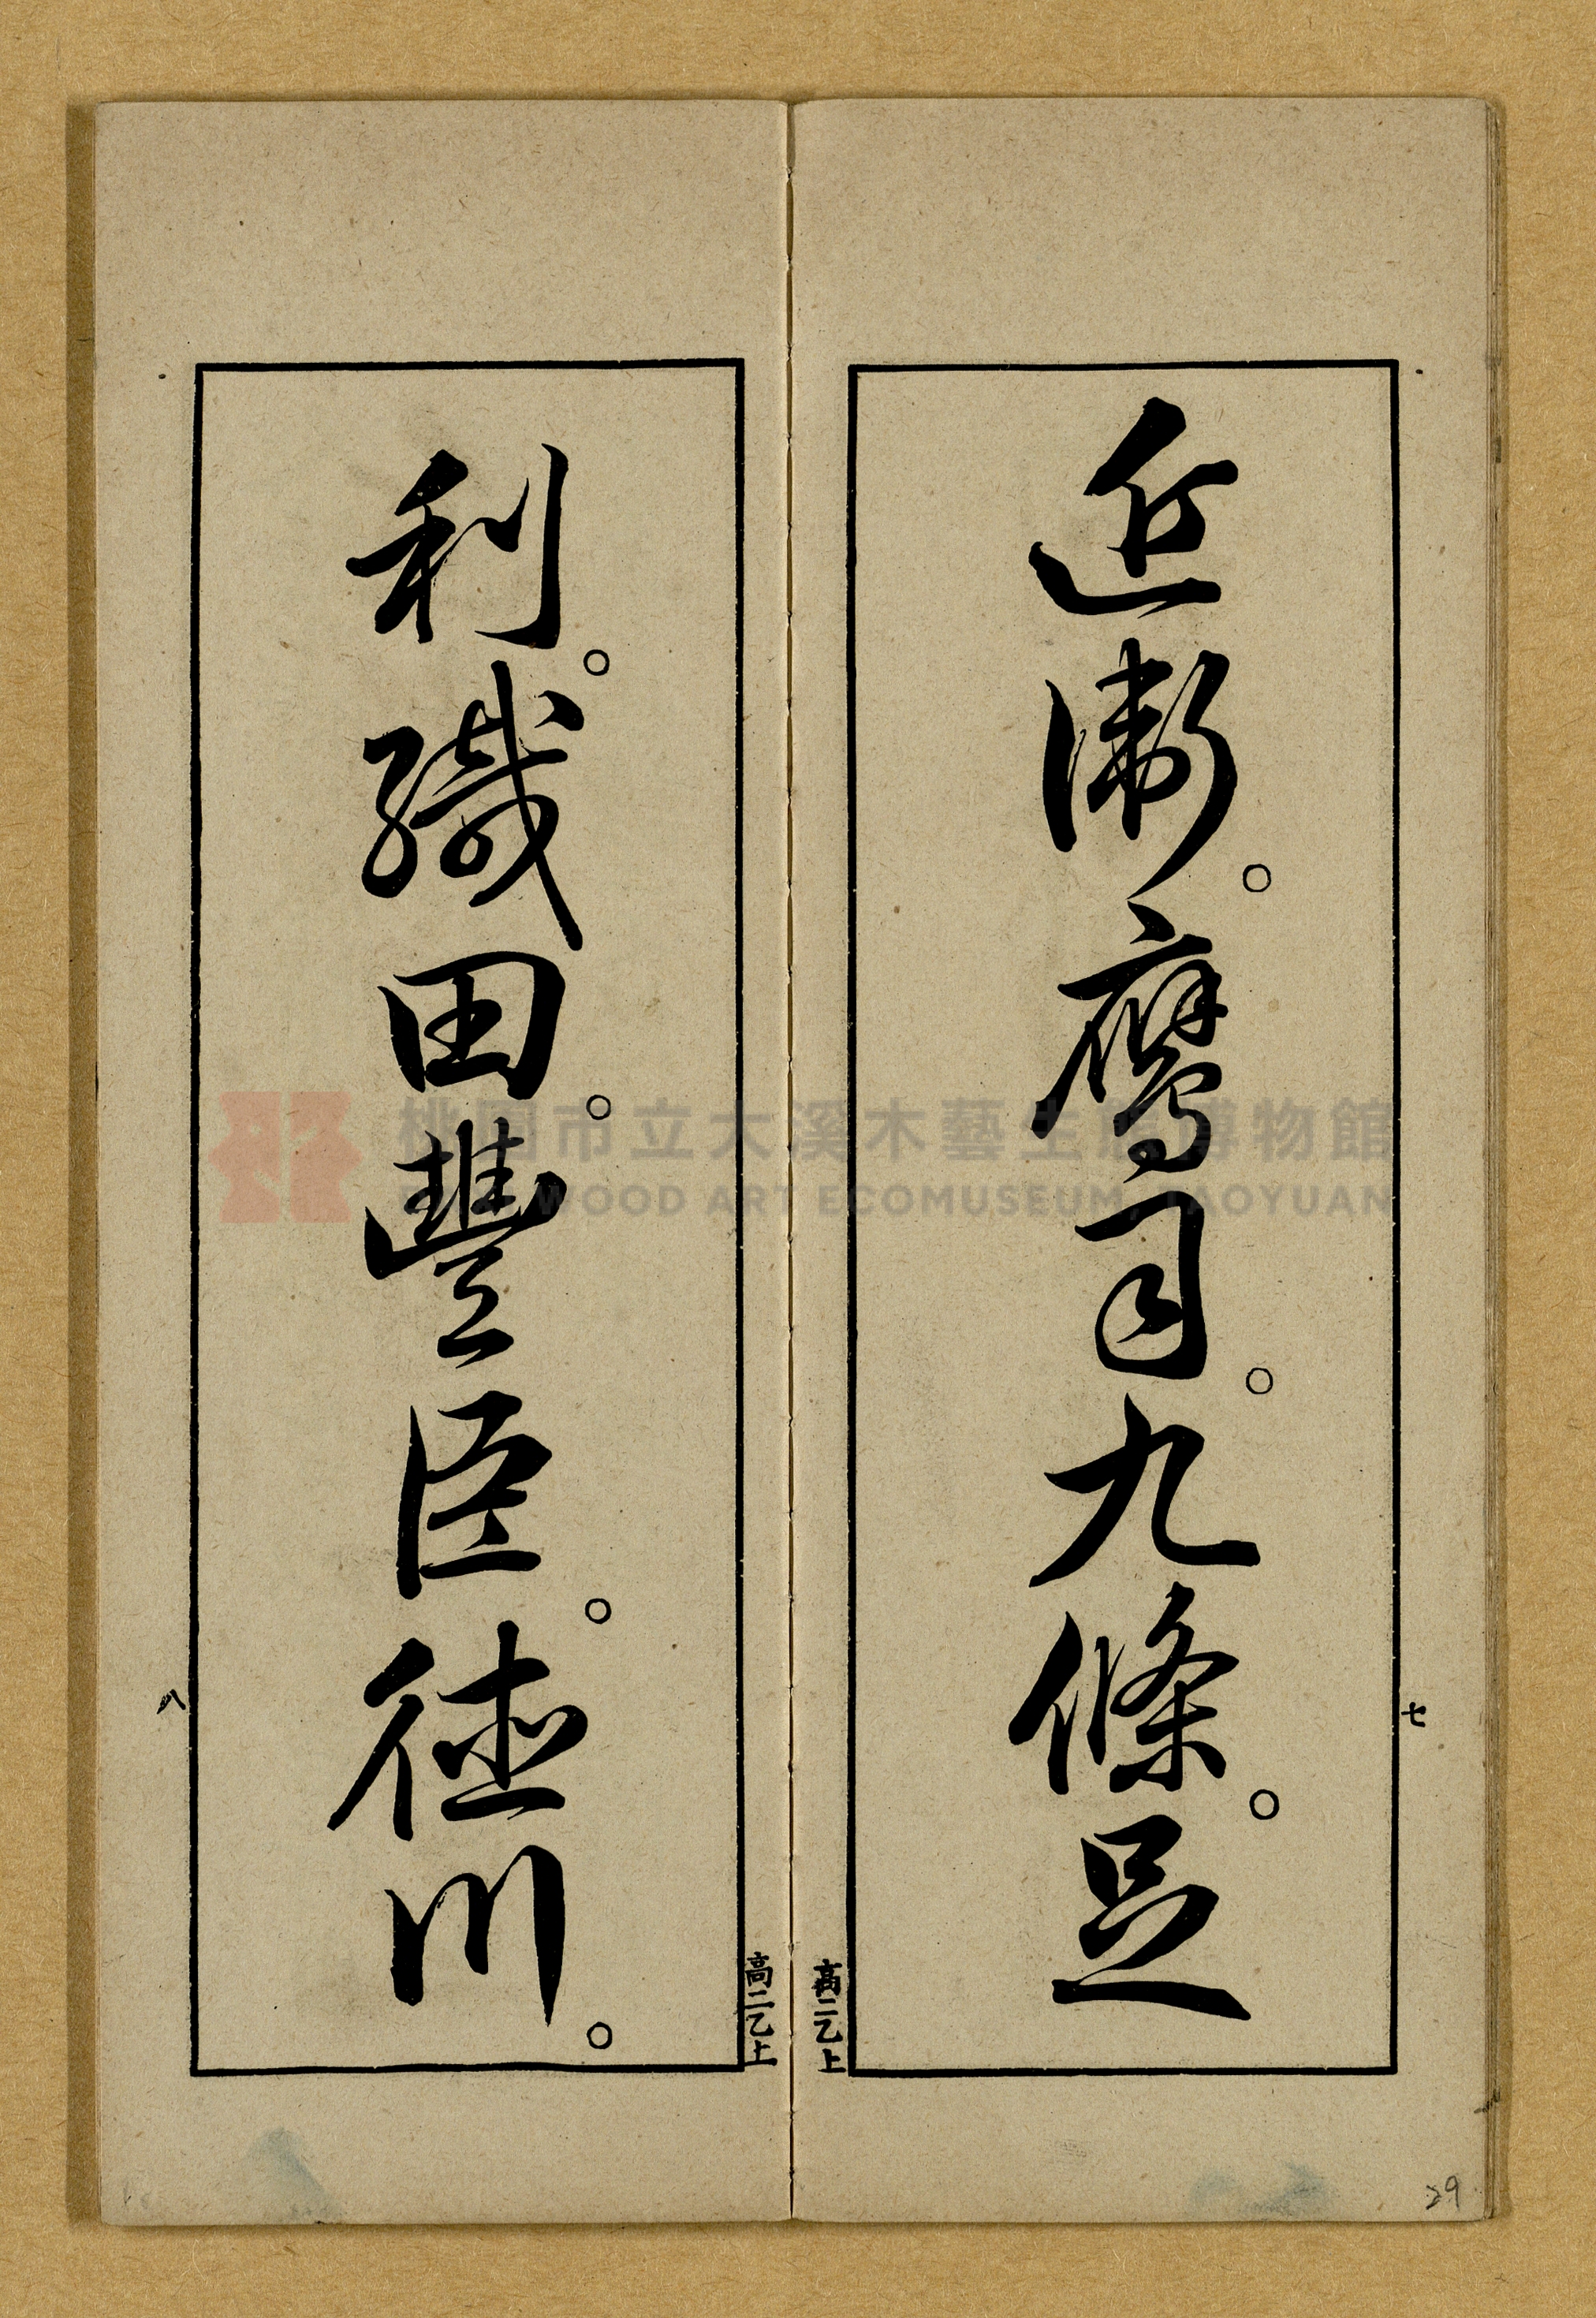 近衛。鷹司。九條。足
七
高二乙上
利。織田。豐臣。德川。
八
高二乙上
29
桃園市立大溪木藝生態博物館
DAXI WOOD ART ECOMUSEUM, TAOYUAN